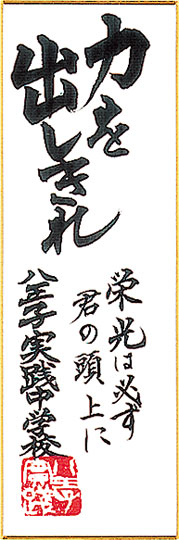 力を
出しきれ
栄光は必ず
君の頭上に
八王子実践中学校